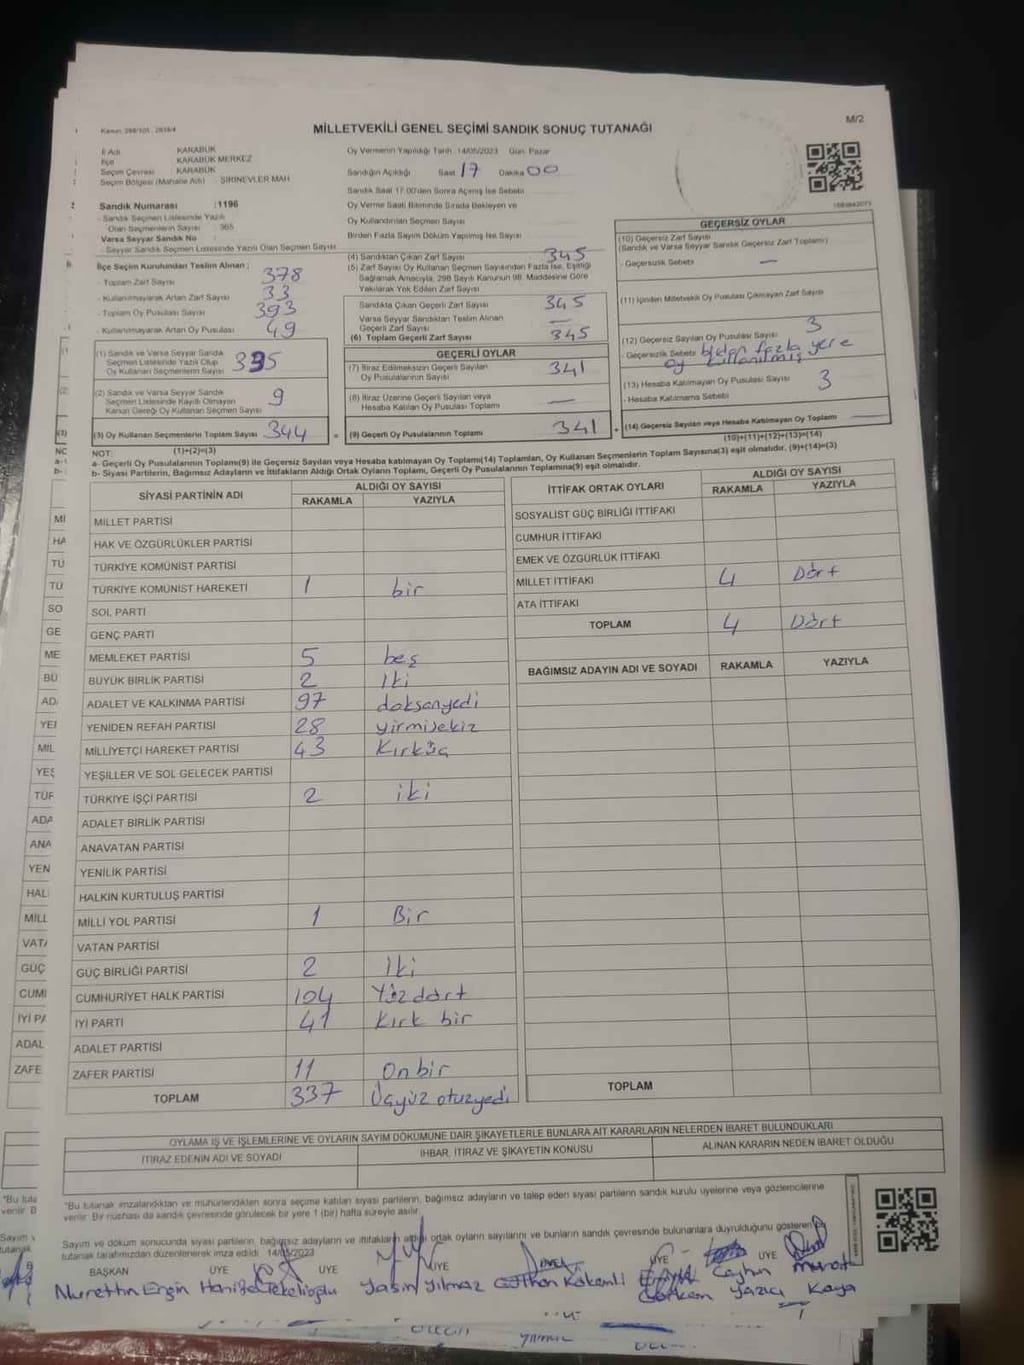 M/2
MİLLETVEKİLİ GENEL SEÇİMİ SANDIK SONUÇ TUTANAĞI
İl Adı KARABÜK
İlçe KARABÜK MERKEZ
Seçim Çevresi KARABÜK
Seçim Bölgesi (Mahalle Adı) ŞİRİNEVLER MAH
Sandık Numarası :1196
- Sandık Seçmen Listesinde Yazılı
Olan Seçmenlerin Sayısı : 365
Varsa Seyyar Sandık No :
- Seyyar Sandık Seçmen Listesinde Yazılı Olan Seçmen Sayısı
Oy Vermenin Yapıldığı Tarih :14/05/2023 Gün: Pazar
Sandığın Açıldığı Saat 17 Dakika 00
Sandık Saat 17:00'den Sonra Açılmış İse Sebebi
Oy Verme Saati Bitiminde Sırada Bekleyen ve
Oy Kullandırılan Seçmen Sayısı
Birden Fazla Sayım Döküm Yapılmış İse Sayısı
İlçe Seçim Kurulundan Teslim Alınan ;
- Toplam Zarf Sayısı 378
- Kullanılmayarak Artan Zarf Sayısı 33
- Toplam Oy Pusulası Sayısı 393
- Kullanılmayarak Artan Oy Pusulası 49
(1) Sandık ve Varsa Seyyar Sandık
Seçmen Listesinde Yazılı Olup
Oy Kullanan Seçmenlerin Sayısı
(2) Sandık ve Varsa Seyyar Sandık
Seçmen Listesinde Kayıtlı Olmayan
Kanun Gereği Oy Kullanan Seçmen Sayısı 9
(3) Oy Kullanan Seçmenlerin Toplam Sayısı 344
(1)+(2)=(3)
(4) Sandıktan Çıkan Zarf Sayısı 345
(5) Zarf Sayısı Oy Kullanan Seçmen Sayısından Fazla İse, Eşitliği
Sağlamak Amacıyla, 298 Sayılı Kanunun 98. Maddesine Göre
Yakılarak Yok Edilen Zarf Sayısı
Sandıkta Çıkan Geçerli Zarf Sayısı 345
Varsa Seyyar Sandıktan Teslim Alınan
Geçerli Zarf Sayısı —
(6) Toplam Geçerli Zarf Sayısı 345
GEÇERLİ OYLAR
(7) İtiraz Edilmeksizin Geçerli Sayılan
Oy Pusulalarının Sayısı 341
(8) İtiraz Üzerine Geçerli Sayılan veya
Hesaba Katılan Oy Pusulası Toplamı —
(9) Geçerli Oy Pusulalarının Toplamı 341
GEÇERSİZ OYLAR
(10) Geçersiz Zarf Sayısı
(Sandık ve Varsa Seyyar Sandık Geçersiz Zarf Toplamı)
- Geçersizlik Sebebi —
(11) İçinden Milletvekili Oy Pusulası Çıkmayan Zarf Sayısı
(12) Geçersiz Sayılan Oy Pusulası Sayısı 3
- Geçersizlik Sebebi birden fazla yere
oy kullanılmış
(13) Hesaba Katılmayan Oy Pusulası Sayısı 3
- Hesaba Katılmama Sebebi
(14) Geçersiz Sayılan veya Hesaba Katılmayan Oy Toplamı
(10)+(11)+(12)+(13)=(14)
NOT:
a- Geçerli Oy Pusulalarının Toplamı(9) ile Geçersiz Sayılan veya Hesaba katılmayan Oy Toplamı(14) Toplamları, Oy Kullanan Seçmenlerin Toplam Sayısına(3) eşit olmalıdır. (9)+(14)=(3)
b- Siyasi Partilerin, Bağımsız Adayların ve İttifakların Aldığı Ortak Oyların Toplamı, Geçerli Oy Pusulalarının Toplamına(9) eşit olmalıdır.
SİYASİ PARTİNİN ADI ALDIĞI OY SAYISI
RAKAMLA YAZIYLA
MİLLET PARTİSİ
HAK VE ÖZGÜRLÜKLER PARTİSİ
TÜRKİYE KOMÜNİST PARTİSİ
TÜRKİYE KOMÜNİST HAREKETİ 1 bir
SOL PARTİ
GENÇ PARTİ
MEMLEKET PARTİSİ 5 beş
BÜYÜK BİRLİK PARTİSİ 2 İki
ADALET VE KALKINMA PARTİSİ 97 doksanyedi
YENİDEN REFAH PARTİSİ 28 yirmisekiz
MİLLİYETÇİ HAREKET PARTİSİ 43 Kırküç
YEŞİLLER VE SOL GELECEK PARTİSİ
TÜRKİYE İŞÇİ PARTİSİ 2 iki
ADALET BİRLİK PARTİSİ
ANAVATAN PARTİSİ
YENİLİK PARTİSİ
HALKIN KURTULUŞ PARTİSİ
MİLLİ YOL PARTİSİ 1 Bir
VATAN PARTİSİ
GÜÇ BİRLİĞİ PARTİSİ 2 İki
CUMHURİYET HALK PARTİSİ 104 Yüzdört
İYİ PARTİ 41 Kırk bir
ADALET PARTİSİ
ZAFER PARTİSİ 11 Onbir
TOPLAM 337 Üçyüz otuzyedi
İTTİFAK ORTAK OYLARI ALDIĞI OY SAYISI
RAKAMLA YAZIYLA
SOSYALİST GÜÇ BİRLİĞİ İTTİFAKI
CUMHUR İTTİFAKI
EMEK VE ÖZGÜRLÜK İTTİFAKI
MİLLET İTTİFAKI 4 Dört
ATA İTTİFAKI
TOPLAM 4 Dört
BAĞIMSIZ ADAYIN ADI VE SOYADI RAKAMLA YAZIYLA
TOPLAM
OYLAMA İŞ VE İŞLEMLERİNE VE OYLARIN SAYIM DÖKÜMÜNE DAİR ŞİKAYETLERLE BUNLARA AİT KARARLARIN NELERDEN İBARET BULUNDUKLARI
İTİRAZ EDENİN ADI VE SOYADI İHBAR, İTİRAZ VE ŞİKAYETİN KONUSU ALINAN KARARIN NEDEN İBARET OLDUĞU
"Bu tutanak imzalandıktan ve mühürlendikten sonra seçime katılan siyasi partilerin, bağımsız adayların ve talep eden siyasi partilerin sandık kurulu üyelerine veya gözlemcilerine
verilir. Bir nüshası da sandık çevresinde görülecek bir yere 1 (bir) hafta süreyle asılır.
Sayım ve döküm sonucunda siyasi partilerin, bağımsız adayların ve ittifakların aldığı ortak oyların sayılarını ve bunların sandık çevresinde bulunanlara duyurulduğunu gösteren
tutanak tarafımızdan düzenlenerek imza edildi. 14/05/2023
BAŞKAN ÜYE ÜYE ÜYE ÜYE
Nurettin Ergin Hanife Tekelioğlu Yasin Yılmaz Yazıcı Murat Kaya